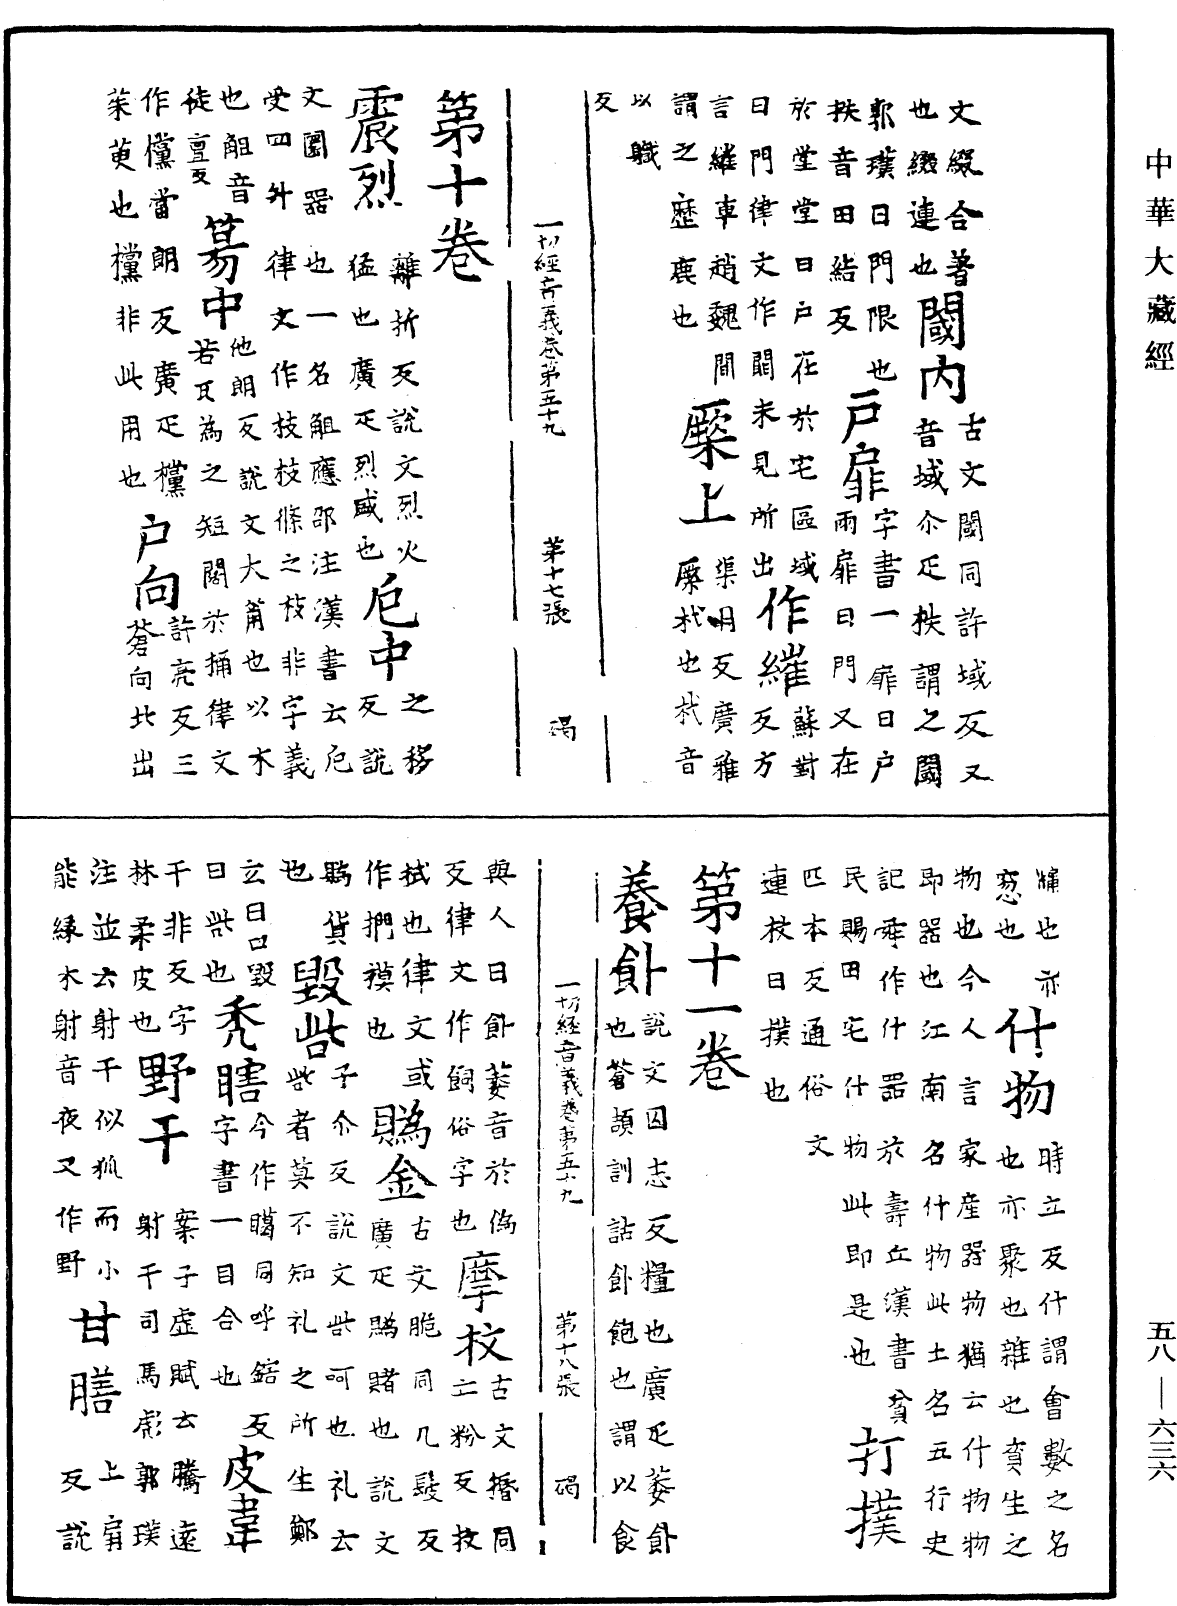 中華大藏經
五八—六三六
文綴合著
也綴連也
閾內
古文閾同許域反又
音域尒疋柣謂之閾
郭璞曰門限也
柣音田結反
戶扉
字書一扉曰戶
兩扉曰門又在
於堂堂曰戶在於宅區域
曰門律文作 未見所出
作繀
蘇對
反方
言繀車趙魏間
謂之歷鹿也
橜上
渠月反廣雅
橜杙也杙音
以職
反
一切經音義卷第五十九 第十七張 碣
第十卷
震烈
離折反說文烈火
猛也廣疋烈盛也
卮中
之移
反說
文圜器也一名觛應邵注漢書云卮
受四升律文作枝枝條之枝非字義
也觛音
徒亶反
簜中
他朗反說文大筩也以木
若瓦為之短闊於桶律文
作欓當朗反廣疋欓
茱萸也欓非此用也
戶向
許亮反三
蒼向北出
牖也亦
窻也
什物
時立反什謂會數之名
也亦聚也雜也資生之
物也今人言家產器物猶云什物物
即器也江南名什物此土名五行史
記舜作什器於壽丘漢書貧
民賜田宅什物此即是也
打撲
匹本反通俗文
連枝曰撲也
第十一卷
養飤
說文囚志反糧也廣疋萎飤
也蒼頡訓詁飤飽也謂以食
一切經音義卷第五十九 第十八張 碣
與人曰飤萎音於偽
反律文作飼俗字也
摩抆
古文 同
亡粉反抆
拭也律文或
作捫摸也
䞈金
古文脆同几髲反
廣疋䞈賭也說文
䞈貨
也
毀呰
子尒反說文呰呵也礼云
呰者莫不知礼之所生鄭
玄曰口毀
曰呰也
禿瞎
今作 同呼鎋反
字書一目合也
皮韋
千非反字
林柔皮也
野干
案子虛賦云騰遠
射干司馬彪郭璞
注並云射干似狐而小
能緣木射音夜又作野
甘膳
上扇
反說